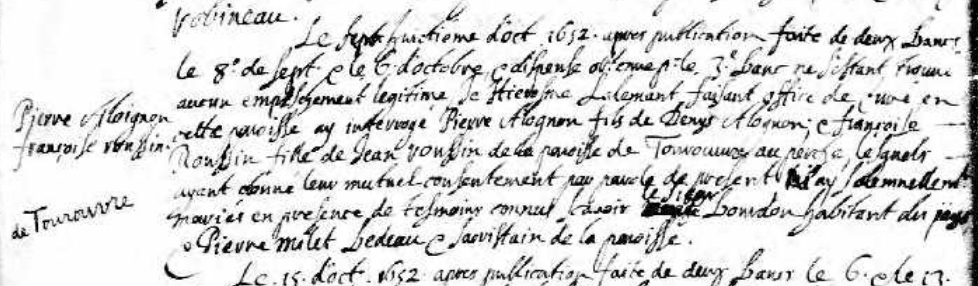 robineau.
Le sept huictiome d'oct 1652. apres publication faite de deux bancs
le 8e de sept. & le 6. d'octobre, & dispense obtenue pr le 3e banc ne s'estant trouvé
aucun empeschement legitime Je Hierosme Lalemant faisant office de curé en
Pierre Aloignon
cette paroisse ay interrogé Pierre Alognon fils de Denys Alognon; & françoise
françoise roussin.
Roussin fille de Jean roussin de la paroisse de Tourouvre au perche, lesquels
ayant donné leur mutuel consentement par parole de present ay solemnellemt
de Tourouvre
mariés en presence de tesmoins connus scavoir le sieur bourdon habitant du pays
& Pierre milet bedeau & sacristain de la paroisse.
Le 15. d'oct. 1652. apres publication faite de deux bancs le 6. & le 13.